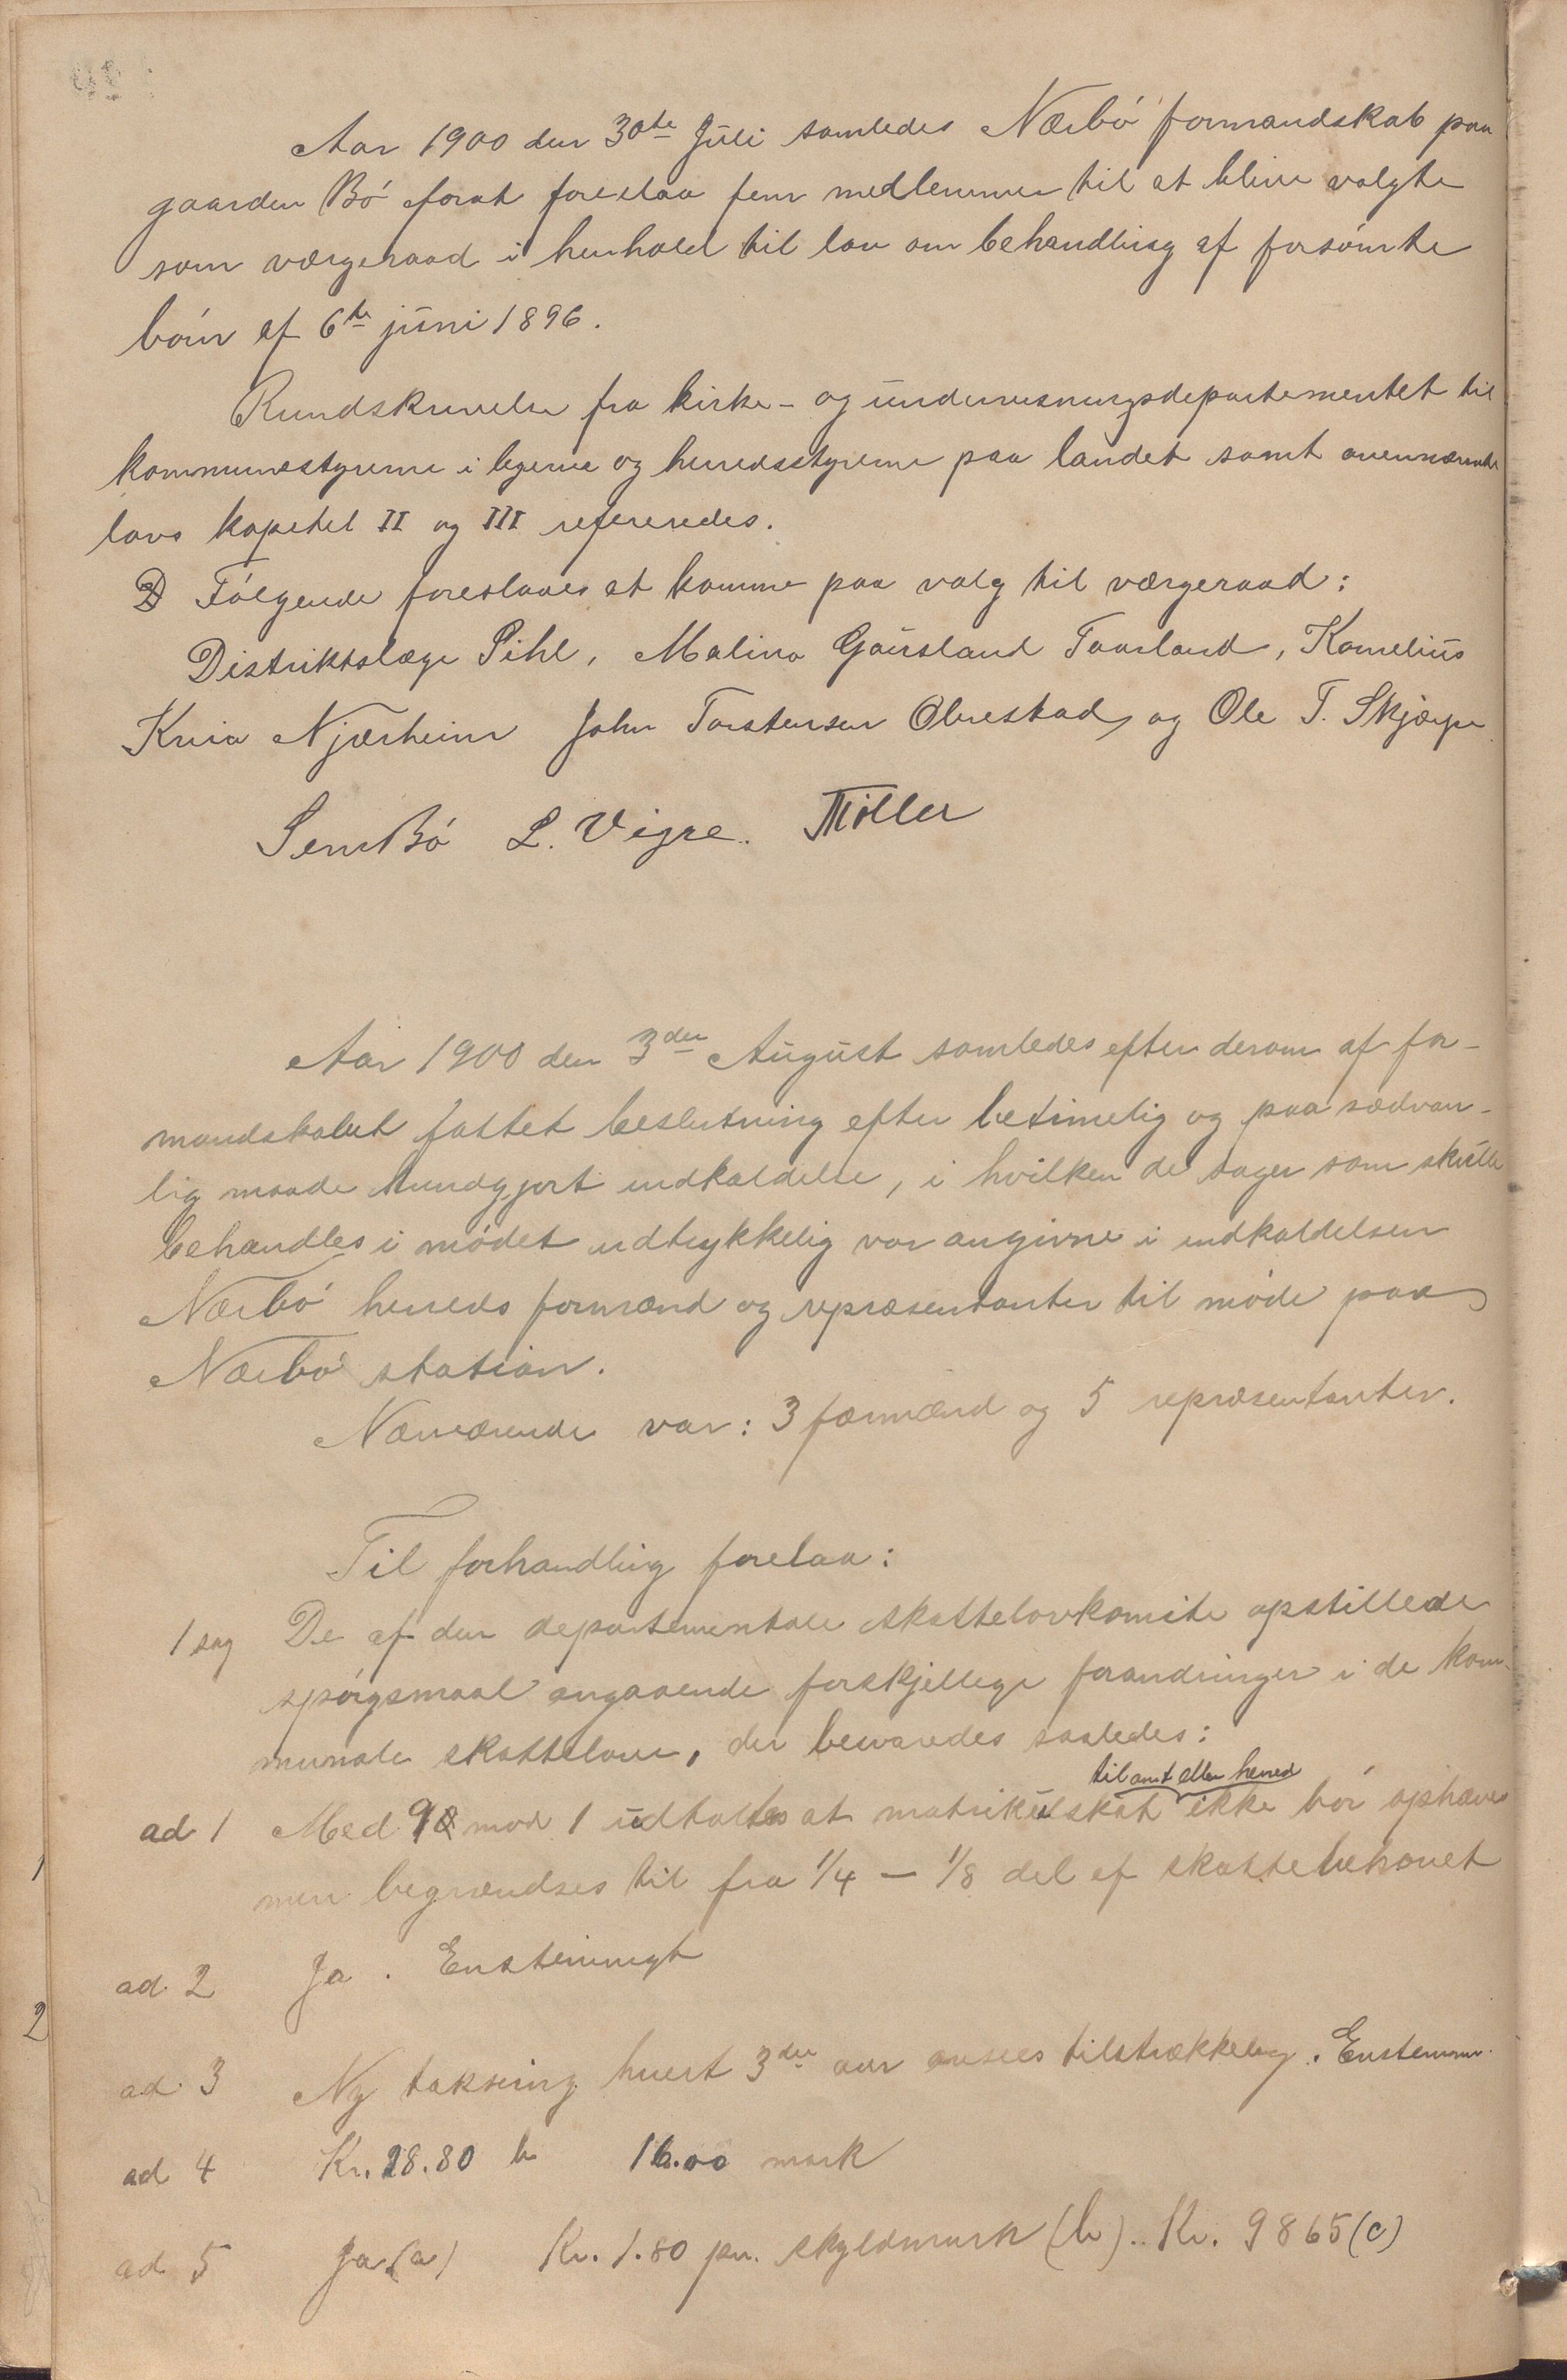 Aar 1900 den 30te Juli samledes Nærbö formandskab paa
gaarden Bö forat foreslaa fem medlemmer til at blive valgte
som værgeraad i henhold til lov om behandling af forsömte
börn af 6te juni 1896.
Rundskrivelse fra kirke- og undervisningsdepartementet til
kommunestyrerne i byerne og herredsstyrerne paa landet samt ovennævnte
lovs kapitel II og III refereredes.
Fölgende foreslaaes at komme paa valg til værgeraad:
Distriktslæge Pihl, Malina Gausland Taarland, Kornelius
Kniа Njærheim John Torstensen Obrestad, og Ole T. Skjærpe
Sem Bö L. Vigre. Möller
Aar 1900 den 3den August samledes efter derom af for-
mandskabet fattet beslutning efter betimelig og paa sædvan-
lig maade kundgjort indkaldelse, i hvilken de sager som skulle
behandles i mödet udtrykkelig var angivne i indkaldelsen
Nærbö herreds formænd og repræsentanter til möde paa
Nærbö station.
Nærværende var: 3 formænd og 5 repræsentanter.
Til forhandling forelaa:
1 sag De af den departementale skattelovkomite opstillede
spörgsmaal angaaende forskjellige forandringer i de kom-
munale skattelove, der besvaredes saaledes:
til amt eller herred
ad 1 Med 9 mod 1 udtaltes at matrikulskat ikke bör ophæves
men begrændses til fra 1/4 — 1/8 del af skattebehovet
ad 2 Ja. Enstemmigt
ad 3 Ny taksering hvert 3die aar ansees tilstrækkelig. Enstemm.
ad 4 Kr. 28.80 b 16.00 mark
ad 5 Ja (a) Kr. 1.80 pr. skyldmark (b).. Kr. 9865 (c)
1
2